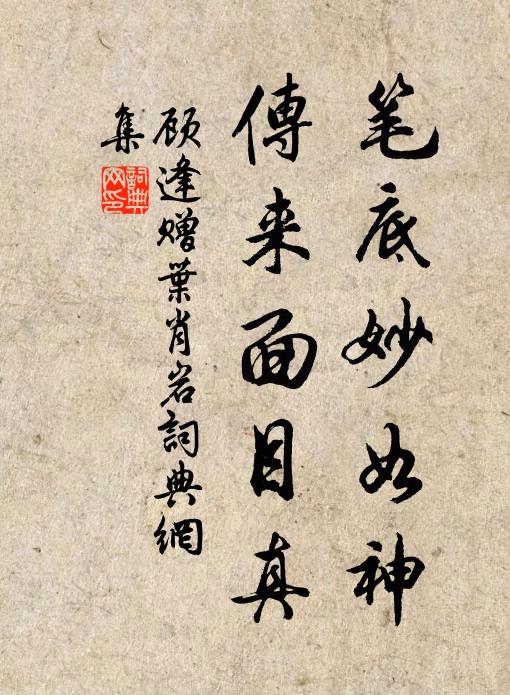 笔底妙如神
傳来面目真
顾逢赠葉肖岩詞典網
集
詞典
网印